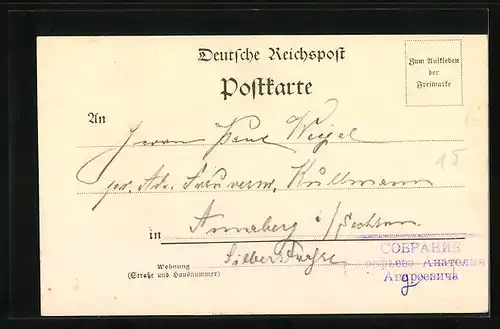 Deutsche Reichspost
Postkarte
Zum Aufkleben
der
Freimarke
An
Herrn Paul Weigel
pr. Adr. Kullmann
15
in Annaberg i/Sachsen
Silberstraße
Wohnung
(Straße und Hausnummer)
СОБРАНИЕ
Анатолия
Андреевича